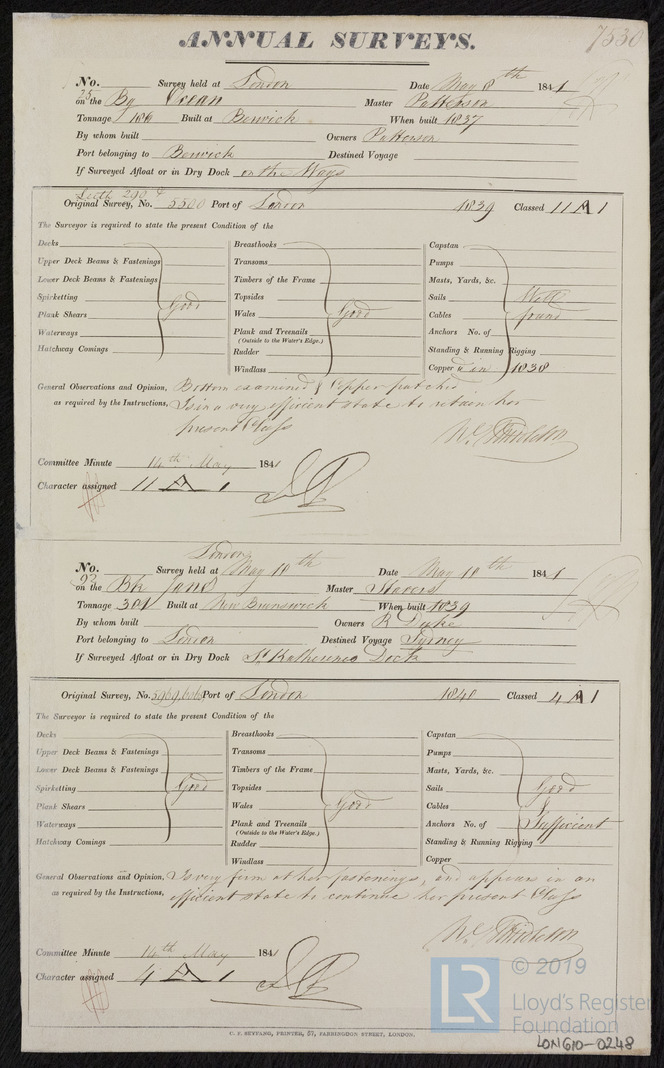 ANNUAL SURVEYS. 7530
No. 25 Survey held at London Date May 8th 1841
on the Bg Ocean Master Pattenson
Tonnage 186 Built at Berwick When built 1837
By whom built Owners Pattenson
Port belonging to Berwick Destined Voyage
If Surveyed Afloat or in Dry Dock on the Ways
Leith 290 &
Original Survey, No. 5500 Port of London 1839 Classed 11 A 1
The Surveyor is required to state the present Condition of the
Decks Breasthooks Capstan
Upper Deck Beams & Fastenings Transoms Pumps
Lower Deck Beams & Fastenings Timbers of the Frame Masts, Yards, &c.
Spirketting Good Topsides Sails Well
Plank Shears Wales Good Cables found
Waterways Plank and Treenails Anchors No. of
(Outside to the Water's Edge.)
Hatchway Comings Rudder Standing & Running Rigging
Windlass Copper'd in 1838
General Observations and Opinion, Bottom examined & Copper patched
as required by the Instructions, Is in a very efficient state to retain her
present Class
Committee Minute 14th May 1841
Character assigned 11 A 1
London
No. 93 Survey held at May 10th Date May 10th 1841
on the Bk Janes Master Stavers
Tonnage 301 Built at New Brunswick When built 1839
By whom built Owners R Duke
Port belonging to London Destined Voyage Sydney
If Surveyed Afloat or in Dry Dock St Katherines Dock
Original Survey, No. Port of London 1840 Classed 4 A 1
The Surveyor is required to state the present Condition of the
Decks Breasthooks Capstan
Upper Deck Beams & Fastenings Transoms Pumps
Lower Deck Beams & Fastenings Timbers of the Frame Masts, Yards, &c.
Spirketting Good Topsides Sails Good
Plank Shears Wales Good Cables &
Waterways Plank and Treenails Anchors No. of Sufficient
(Outside to the Water's Edge.)
Hatchway Comings Rudder Standing & Running Rigging
Windlass Copper
General Observations and Opinion, Is very firm at her fastenings, and appears in an
as required by the Instructions, efficient state to continue her present Class
Committee Minute 14th May 1841
Character assigned 4 A 1
© 2019
LR Lloyd's Register
Foundation
C. F. SEYFANG, PRINTER, 57, FARRINGDON STREET, LONDON.
LON610-0248